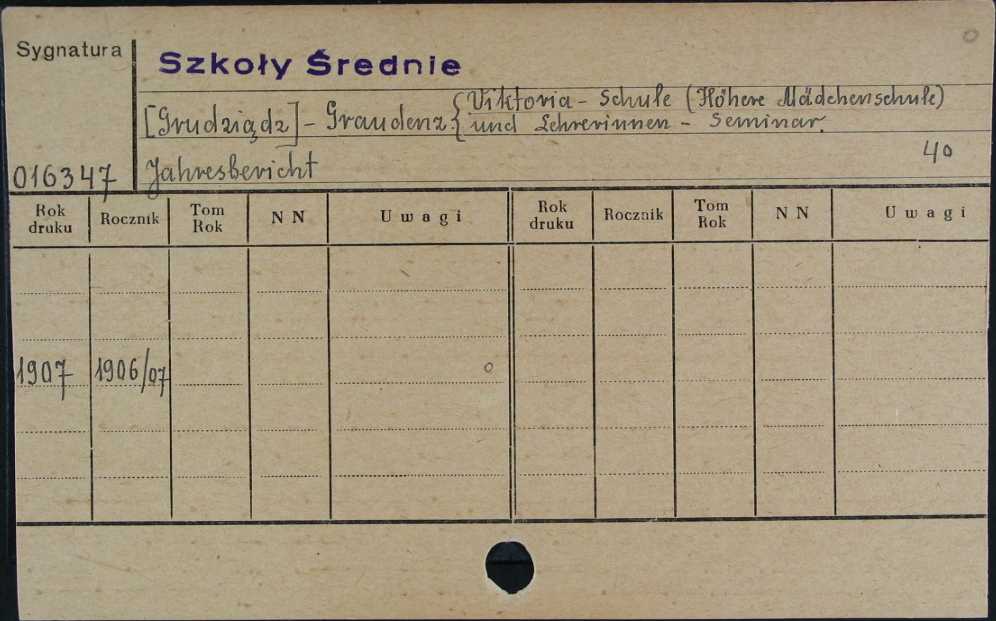 0
Sygnatura
Szkoły Średnie
[Grudziądz] - Graudenz. { Viktoria - Schule (Höhere Mädchenschule)
und Lehrerinnen - Seminar.
40
016347 Jahresbericht
Rok druku Rocznik Tom Rok N N Uwagi Rok druku Rocznik Tom Rok N N Uwagi
1907 1906/07 0